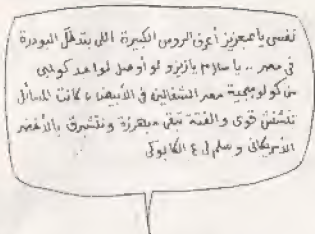 نفسى يا عمعزيز أعرف الروس الكبيرة اللى بتدخل البودرة
فى مصر .. يا سلام يا زيزو لو أوصل لواحد كولمبى
من كولومبيا مصر الشغالين فى الأبيض، كانت المسائل
تنشنش قوى والفتة تبقى مبهرزة ونتشبرق بالأخضر
الأمريكانى وسلم لى ع الكابوكى